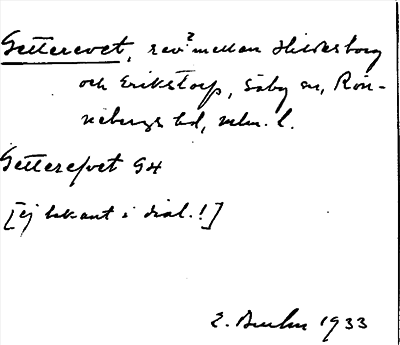 Getterevet, rev? mellan Hildesborg
och Erikstorp, Säby sn, Rön-
nebergs hd, Mlm. l.
Getterefvet G4
[ej bekant i dial.!]
1933